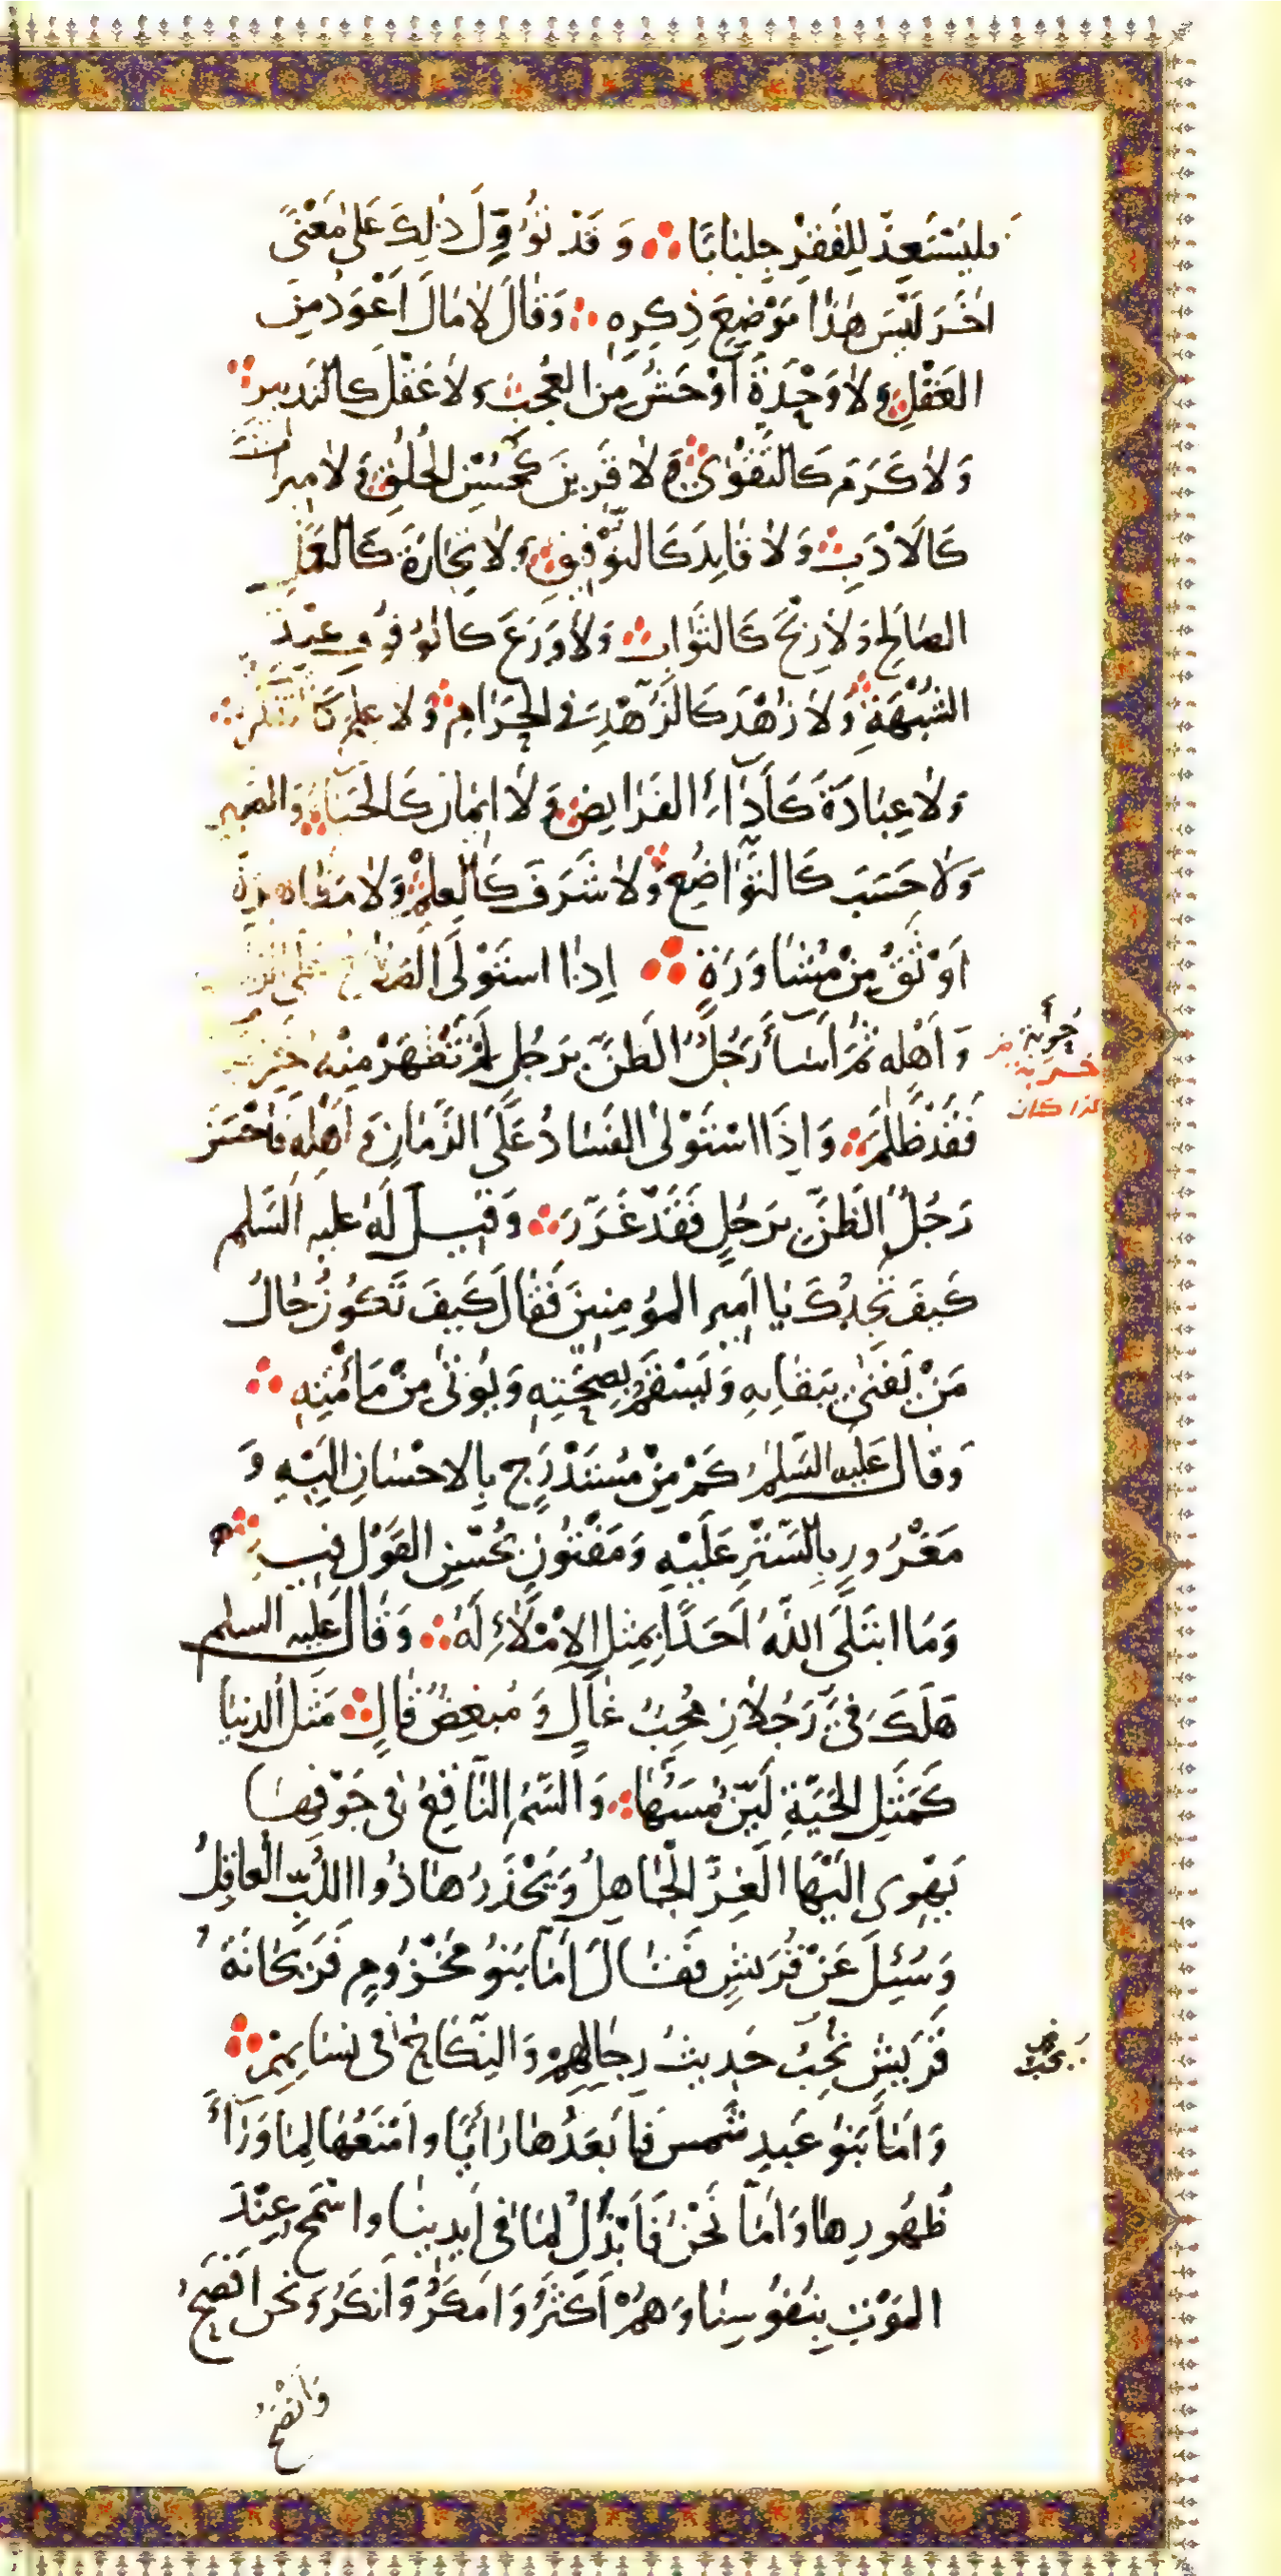 فليستعد للفقر جلبابا وَ قَدْ تُؤُوِّلَ ذٰلِكَ عَلىٰ مَعْنًى
اٰخَرَ لَيْسَ هٰذَا مَوْضِعَ ذِكْرِهِ وَقَالَ لَا مَالَ اَعْوَدُ مِنَ
العَقْلِ وَلَا وَحْدَةَ اَوْحَشُ مِنَ العُجْبِ وَلَا عَقْلَ كَالتَدبير
وَلَا كَرَمَ كَالتَّقْوٰى وَ لَا قَرِينَ كَحُسْنِ الخُلُقِ وَ لَا ميراث
كَالاَدَبِ وَلَا قَايِدَ كَالتَّوْفِيقِ وَلَا تِجَارَةَ كَالعَمَلِ
الصَالِحِ وَلَا رِبْحَ كَالثَّوَابِ وَلَا وَرَعَ كَالوُقُوفِ عِنْدَ
الشُبْهَةِ وَلَا زُهْدَ كَالزُّهْدِ فى الحَرَامِ وَلَا عِلمَ كَالتَّفَكُّرِ
وَلَا عِبَادَةَ كَأَدَاءِ الفَرَايِضِ وَ لَا ايمَانَ كَالحَيَاءِ وَالصَبرِ
وَلَا حَسَبَ كَالتَّوَاضُعِ وَلَا شَرَفَ كَالْعِلْمِ وَلَا مُظَاهَرَةَ
اَوْثَقُ مِنْ مُشَاوَرَةٍ اِذَا اسْتَوْلَى الصَلَاحُ عَلَى الزَمَانِ
وَ اَهْلِه ثُمَّ اَسَآءَ رَجُلٌ الظَنَّ بِرَجُلٍ لَمْ تَظْهَرْ مِنْهُ خِزْيَة
حَوْبَة
خَرَبَة
كذا كان
فَقَدْ ظَلَمَ وَاِذَا اسْتَوْلَى الفَسَادُ عَلَى الزَّمَانِ وَ اَهْلِهِ فَاَحْسَنَ
رَجُلٌ الظَنَّ بِرَجُلٍ فَقَدْ غَرَّرَ وَقِيلَ لَهُ عليه السَلم
كَيفَ تَجِدُكَ يَا اَميرَ المؤمِنِينَ فَقَالَ كَيفَ تَكُونُ حَالُ
مَنْ يَفنىٰ بِبَقَايِهِ وَيَسْقَمُ بِصِحَّتِهِ وَيُؤتىٰ مِنْ مَأمَنِهِ
وَقَالَ عَلَيهِ السَّلمُ كَمْ مِنْ مُسْتَدْرَجٍ بِالاحْسَانِ اِلَيْهِ وَ
مَغْرُورٍ بِالسَّتْرِ عَلَيْهِ وَمَفْتُونٍ بِحُسْنِ القَوْلِ فيهِ
وَمَا ابْتَلَى اللهُ اَحَدًا بِمِثْلِ الاِمْلَاءِ لَهُ وَقَالَ عَلَيهِ السلم
هَلَكَ فِىَّ رَجُلَانِ مُحِبٌّ غَالٍ وَ مُبغِضٌ قَالٍ مَثَلُ الدنيَا
كَمَثَلِ الحَيَّةِ لَيِّنٌ مَسُّهَا وَالسَّمُّ النَّاقِعُ فى جَوْفِهَا
يَهْوِى اِلَيْهَا الغِرُّ الْجَاهِلُ وَيَحْذَرُهَا ذُوا اللُبِّ العَاقِلُ
وَسُئِلَ عَنْ قُرَيشٍ فَقَالَ اَمَّا بَنُو مَخْزُومٍ فَرَيْحَانَةُ
قُرَيشٍ تُحِبُّ حَديثَ رِجَالِهِمْ وَالنِكَاحَ فى نِسَايِهِمْ
نحب
وَ اَمَّا بَنُو عَبدِ شَمسٍ فَاَبعَدُهَا رَأيًا وامْنَعُهَا لِمَا وَرَآءَ
ظُهُورِهَا وَاَمَّا نَحْنُ فَاَبْذَلُ لِمَا فى اَيدِينَا واسْمَحُ عِنْدَ
المَوْتِ بِنُفُوسِنَا وَهُمْ اَكثَرُ وَاَمْكَرُ وَاَنكَرُ وَنَحنُ افصَحُ
وَ اَنْصَحُ